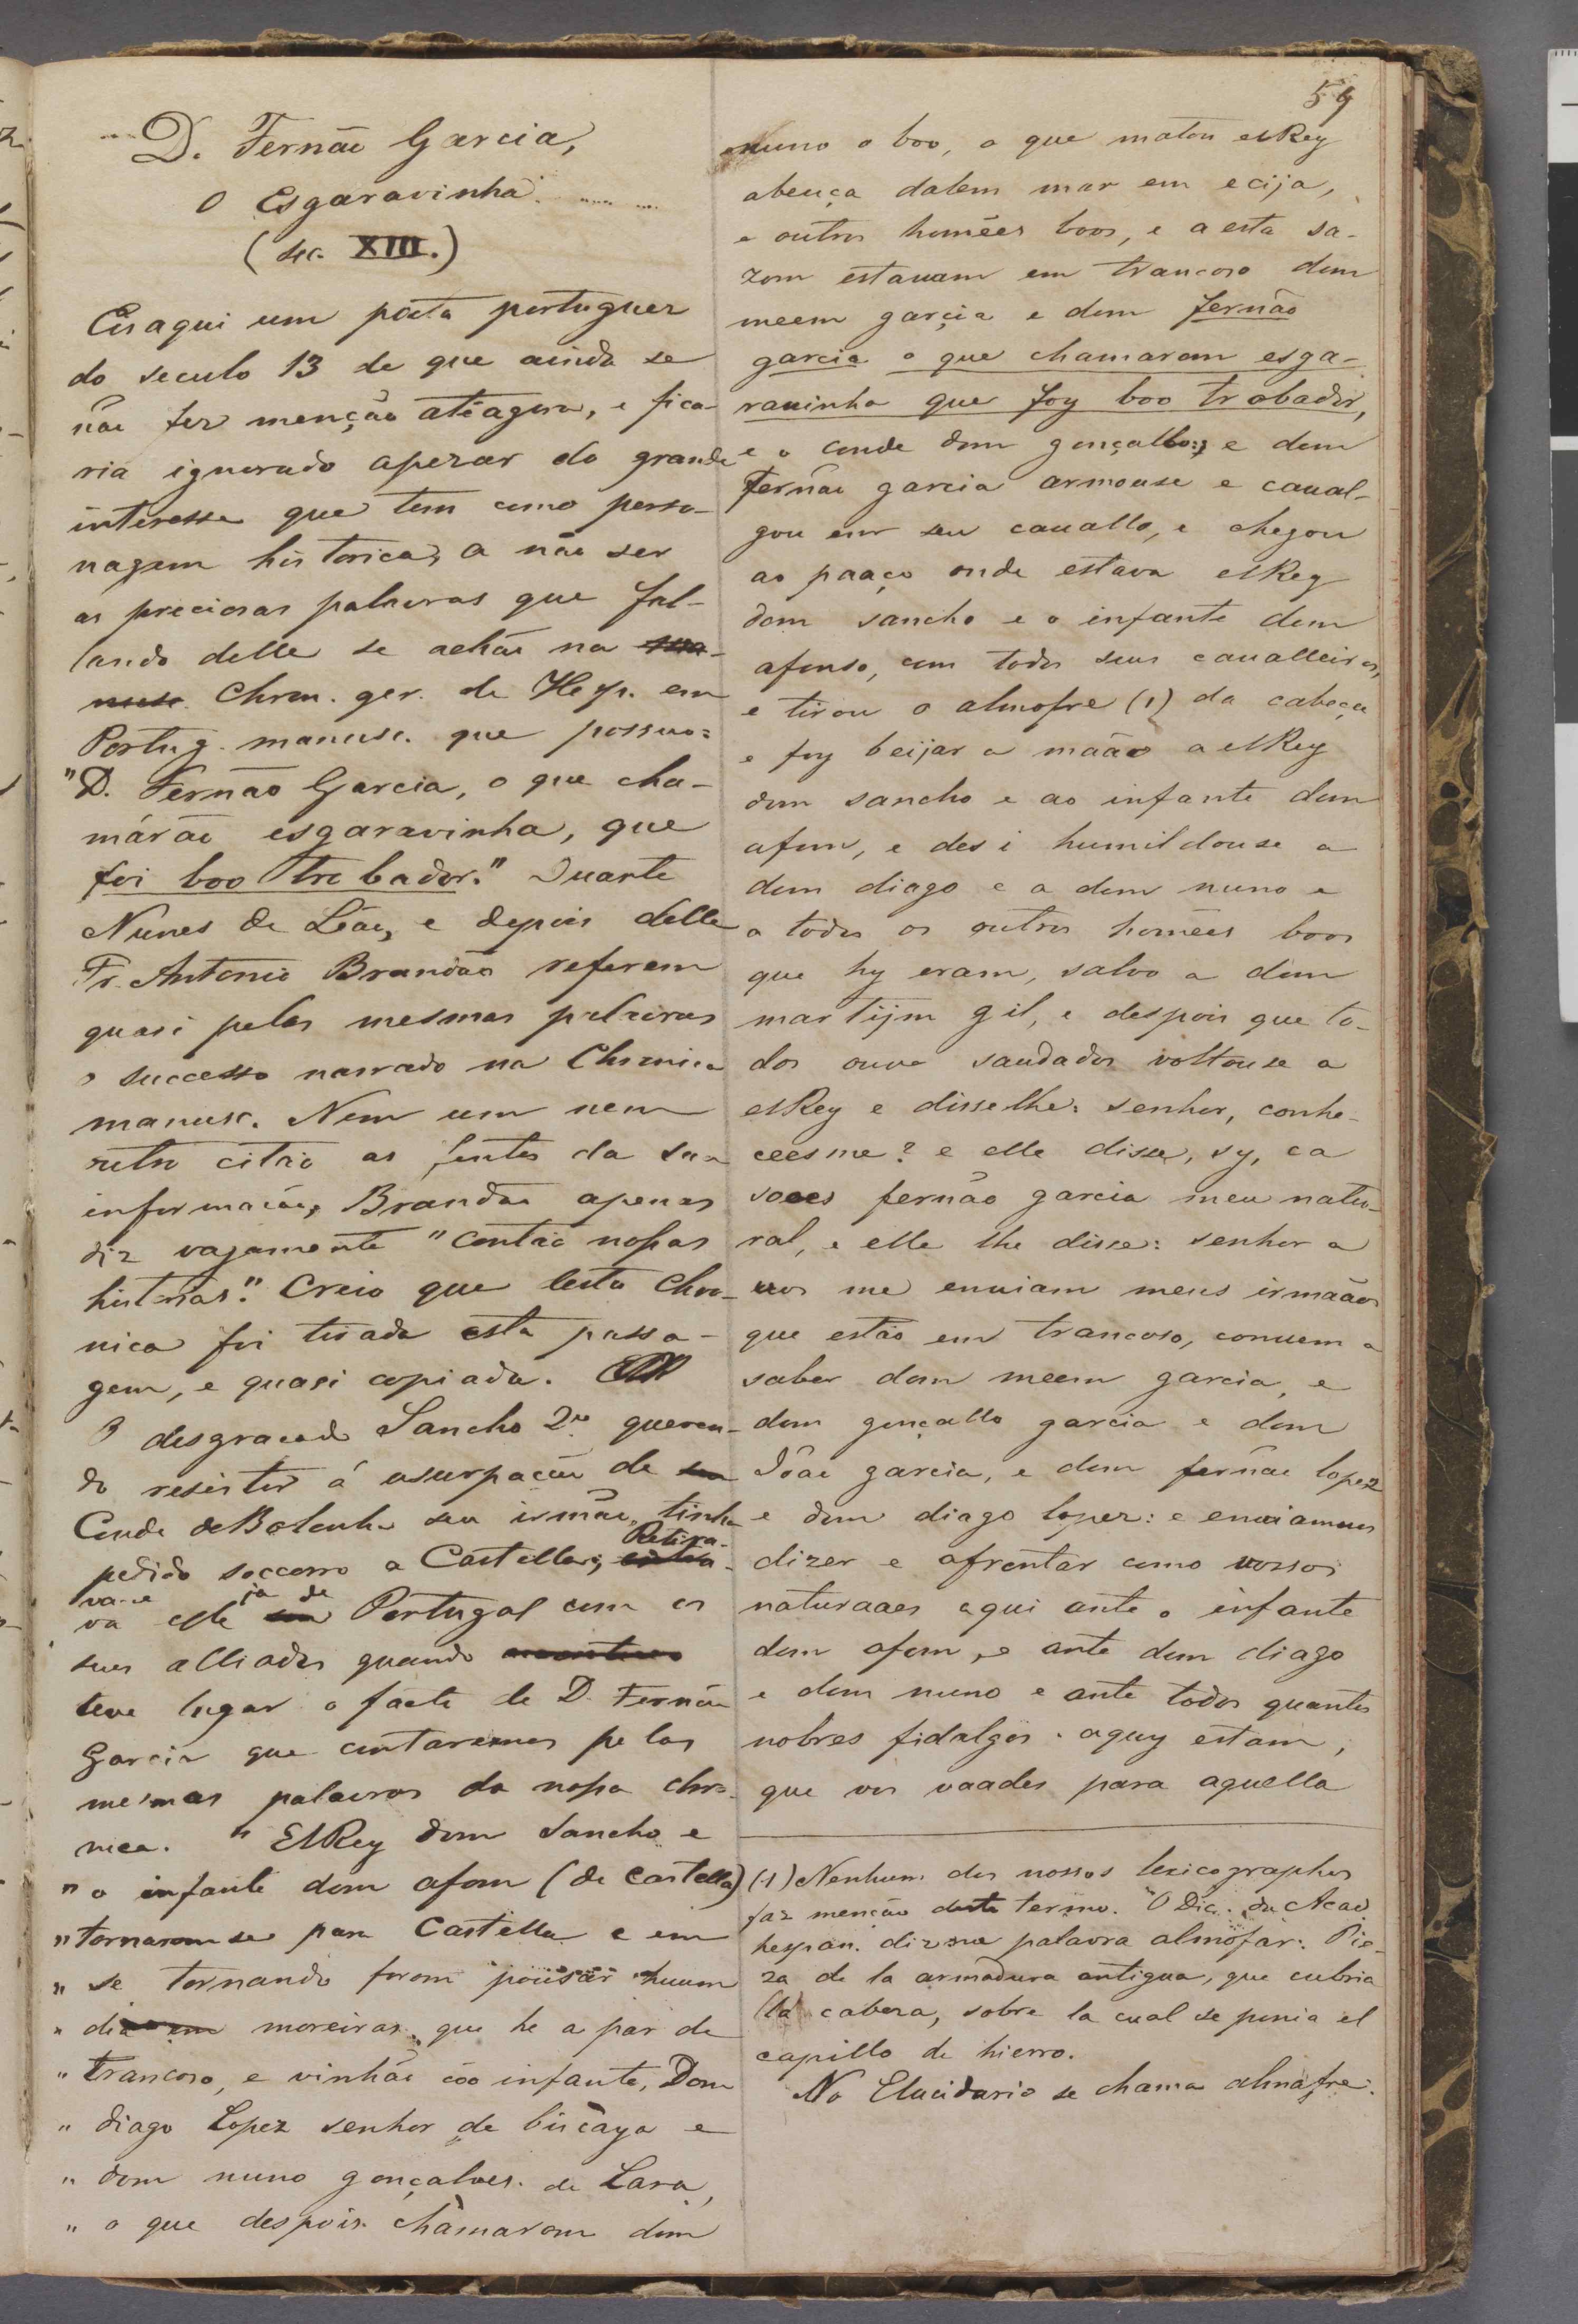 59
D. Fernão Garcia,
O Esgaravinha.
(sec. XIII.)
Eis aqui um poeta portuguez
do seculo 13 de que ainda se
não fez menção atéagora, e fica-
ria ignorado apezar do grande
interesse que tem como perso-
nagem historica, a não ser
as preciosas palavras que fal-
lando delle se achão na
Chron. ger. de Hesp. em
Portug. manusc. que possuo:
"D. Fernão Garcia, o que cha-
márão esgaravinha, que
foi boo trobador." Duarte
Nunes de Leão, e depois delle
Fr. Antonio Brandão referem
quasi pelas mesmas palavras
o successo narrado na Chronica
manusc. Nem um nem
outro citão as fontes da sua
informação, Brandão apenas
diz vagamente "contão nossas
historias." Creio que desta Chro-
nica foi tirada esta passa-
gem, e quasi copiada.
O desgraçado Sancho 2º queren-
do resistir á usurpação de
Conde de Bolonha seu irmão, tinha
pedido soccorro a Castella; Retira-
va-se este já de Portugal com os
seus alliados quando
teve lugar o facto de D. Fernão
Garcia que contaremos pelas
mesmas palavras da nossa chro-
nica. "ElRey dom Sancho e
" o infante dom afom (de Castella)
" tornaromse para Castella e em
" se tornando forom pousar huum
" dia em moreiras, que he a par de
" trancoso, e vinhão cõo infante, Dom
" diago Lopez senhor de biscaya e
" dom nuno gonçalves de Lara,
" o que despois chamarom dom
nuno o boo, o que matou elRey
abeuça dalem mar em ecija,
e outros homẽes boos, e a esta sa-
zom estauam em trancoso dom
meem garçia e dom fernão
garcia o que chamarom esga-
rauinha que foy boo trobador,
e o conde dom gonçallo; e dom
fernão garcia armouse e caual-
gou em seu cauallo, e chegou
ao paaço onde estava elRey
dom sancho e o infante dom
afonso, com todos seus caualleiros,
e tirou o almofre (1) da cabeça
e foy beijar a mãao a elRey
dom sancho e ao infante dom
afom, e des i humildouse a
dom diago e a dom nuno e
a todos os outros homẽes boos
que hy eram, salvo a dom
martijm gil, e despois que to-
dos ouve saudados voltouse a
elRey e disselhe: senhor, conhe-
ceesme? e elle disse, sy, ca
soees fernão garcia meu natu-
ral, e elle lhe disse: senhor a
uos me enuiam meus irmãaos
que estão em trancoso, conuem a
saber dom meem garcia, e
dom gonçallo garcia e dom
João garcia, e dom fernão lopez
e dom diago lopez: e enuiamuos
dizer e afrontar como uossos
naturaaes aqui ante o infante
dom afom, e ante dom diago
e dom nuno e ante todos quantos
nobres fidalgos aquy estam,
que vos vaades para aquella
(1) Nenhum dos nossos lexicographos
faz menção deste termo. O Dic. da Acad.
hespan. diz na palavra almofar: Pie-
za de la armadura antigua, que cubria
la cabeza, sobre la cual se ponia el
capillo de hierro.
No Elucidario se chama almafre.